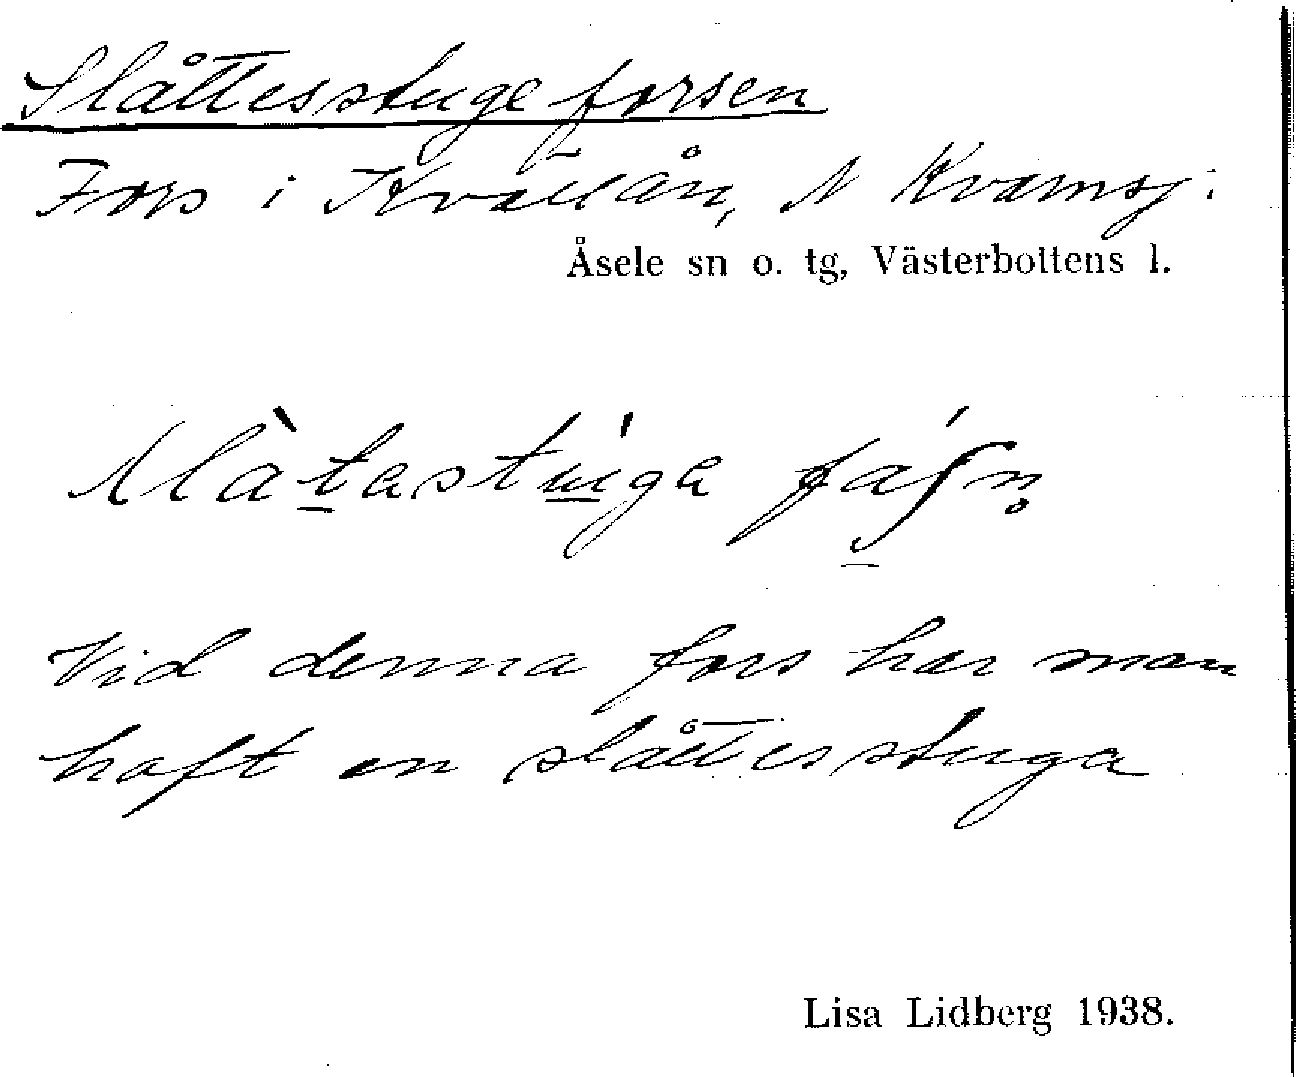 Slåttesstugeforsen
Fors i Kvällån, N Kvarnsj:
Åsele sn o. tg, Västerbottens l.
slàtastúga fáʃn̥
Vid denna fors har man
haft en slåttesstuga
Lisa Lidberg 1938.